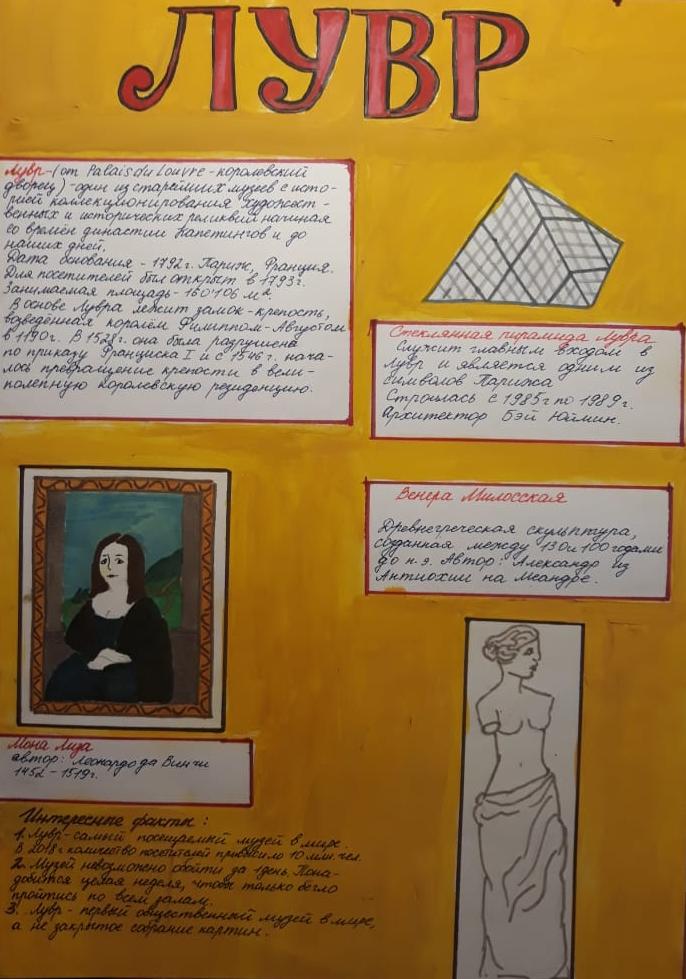 ЛУВР
Лувр-(от Palais du Louvre - королевский
дворец) - один из старейших музеев с исто-
рией коллекционирования художест-
венных и исторических реликвий начиная
со времён династии Капетингов и до
наших дней.
Дата основания - 1792г. Париж, Франция.
Для посетителей был открыт в 1793г.
Занимаемая площадь - 160'106 м².
В основе Лувра лежит замок-крепость,
возведенная королём Филиппом-Августом
в 1190г. В 1528г. она была разрушена
по приказу Франциска I и с 1546г. нача-
лось превращение крепости в вели-
колепную королевскую резиденцию.
Стеклянная пирамида Лувра
Служит главным входом в
Лувр и является одним из
символов Парижа
Строилась с 1985г по 1989г.
Архитектор Бэй Юймин.
Венера Милосская
Древнегреческая скульптура,
созданная между 130 и 100 годами
до н.э. Автор: Александр из
Антиохии на Меандре.
Мона Лиза
автор: Леонардо да Винчи
1452 - 1519г.
Интересные факты:
1. Лувр - самый посещаемый музей в мире.
В 2018г количество посетителей превысило 10 млн. чел.
2. Музей невозможно обойти за 1 день. Пона-
добится целая неделя, чтобы только бегло
пройтись по всем залам.
3. Лувр - первый общественный музей в мире,
а не закрытое собрание картин.